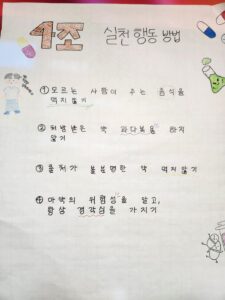 1조 실천 행동 방법
① 모르는 사람이 주는 음식을
먹지않기
② 처방받은 약 과다복용 하지
않기
③ 출처가 불분명한 약 먹지않기
④ 마약의 위험성을 알고,
항상 경각심을 가지기